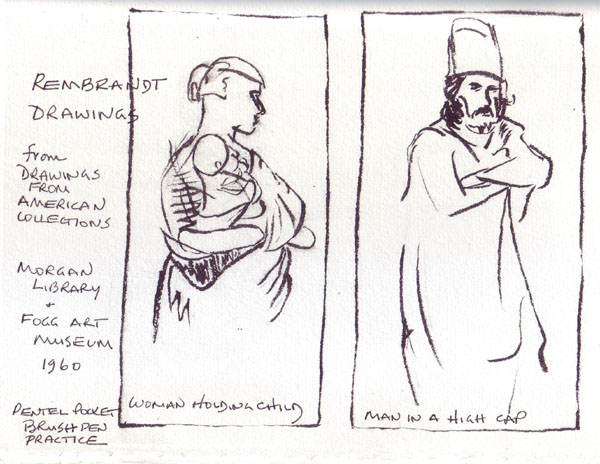 REMBRANDT
DRAWINGS
from
DRAWINGS
FROM
AMERICAN
COLLECTIONS
MORGAN
LIBRARY
+
FOGG ART
MUSEUM
1960
PENTEL POCKET
BRUSH PEN
PRACTICE
WOMAN HOLDING CHILD
MAN IN A HIGH CAP